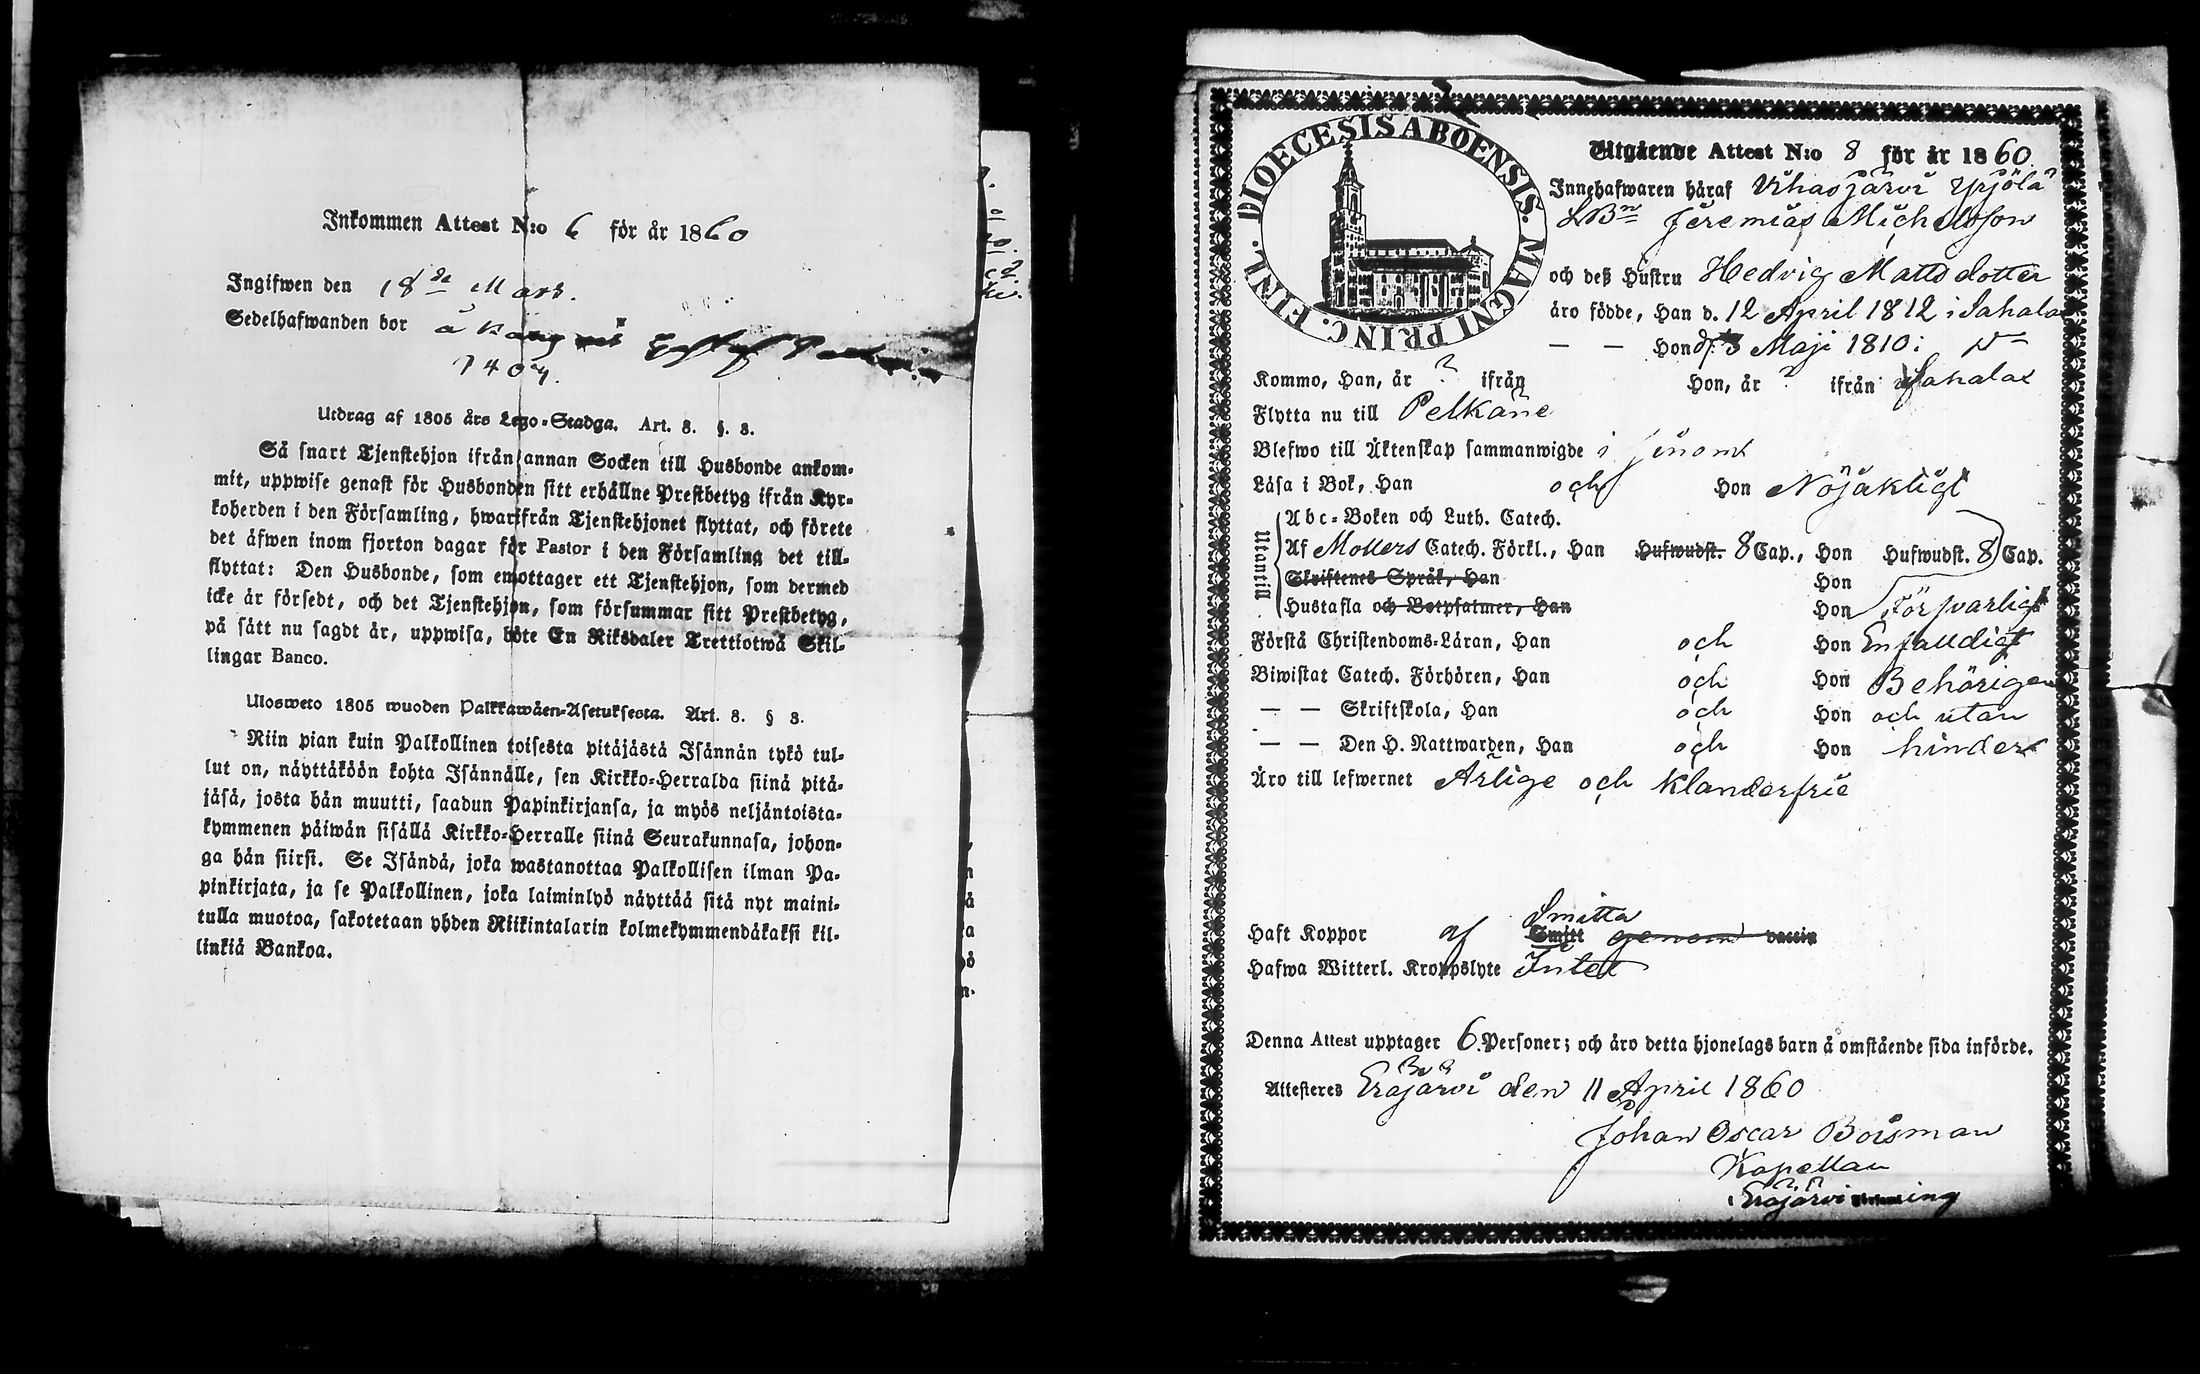 Inkommen Attest N:o 6 för år 1860
Ingifwen den 18de Mars.
Sedelhafwanden bor å
Utdrag af 1805 års Lego-Stadga. Art. 8. §. 3.
Så snart Tjenstehjon ifrån annan Socken till Husbonde ankom-
mit, uppwise genast för Husbonden sitt erhållne Prestbetyg ifrån Kyr-
koherden i den Församling, hwarifrån Tjenstehjonet flyttat, och förete
det äfwen inom fjorton dagar för Pastor i den Församling det till-
flyttat: Den Husbonde, som emottager ett Tjenstehjon, som dermed
icke är försedt, och det Tjenstehjon, som försummar sitt Prestbetyg,
på sätt nu sagdt är, uppwisa, böte En Riksdaler Trettiotwå Skil-
lingar Banco.
Ulosweto 1805 wuoden Palkkawäen-Asetuksesta. Art. 8. § 3.
Niin pian kuin Palkollinen toisesta pitäjästä Isännän tykö tul-
lut on, näyttäköön kohta Isännälle, sen Kirkko-Herralda siinä pitä-
jäsä, josta hän muutti, saadun Papinkirjansa, ja myös neljäntoista-
kymmenen päiwän sisällä Kirkko-Herralle siinä Seurakunnasa, johon-
ga hän siirsi. Se Isändä, joka wastanottaa Palkollisen ilman Pa-
pinkirjata, ja se Palkollinen, joka laiminlyö näyttää sitä nyt maini-
tulla muotoa, sakotetaan yhden Riikintalarin kolmekymmendäkaksi kil-
linkiä Bankoa.
DIOECESIS ABOENSIS. MAGNI PRINC. FINL.
Utgående Attest N:o 8 för år 1860.
Innehafwaren häraf Vihasjärvi Yrjölä
Jeremias Michelsson
och deß Hustru Hedvig Mattsdotter
äro födde, Han d. 12 April 1812 i Sahalax
— — Hon d. 3 Maji 1810 i
Kommo, Han, år ? ifrån Hon, år ? ifrån Sahalax
Flytta nu till Pelkäne
Blefwo till Äktenskap sammanwigde i
Läsa i Bok, Han och Hon Nöjaktigt
Utantill Abc-Boken och Luth. Catech.
Af Möllers Catech. Förkl., Han Hufwudst. 8 Cap., Hon Hufwudst. 8 Cap.
Skriftenes Språk, Han Hon
Hustafla och Botpsalmer, Han Hon Försvarligt
Förstå Christendoms-Läran, Han och Hon Enfaldigt
Biwistat Catech. Förhören, Han och Hon Behörigen
— — Skriftskola, Han och Hon och utan
— — Den H. Nattwarden, Han och Hon hinder
Äro till lefwernet Ärlige och klanderfrie
Smitta
Haft Koppor af Smitt genom vaccin
Hafwa Witterl. Kroppslyte Intet
Denna Attest upptager 6 Personer; och äro detta hjonelags barn å omstående sida införde.
Attesteres Eräjärvi den 11 April 1860
Johan Oscar Boisman
Kapellan
i Eräjärvi Församling